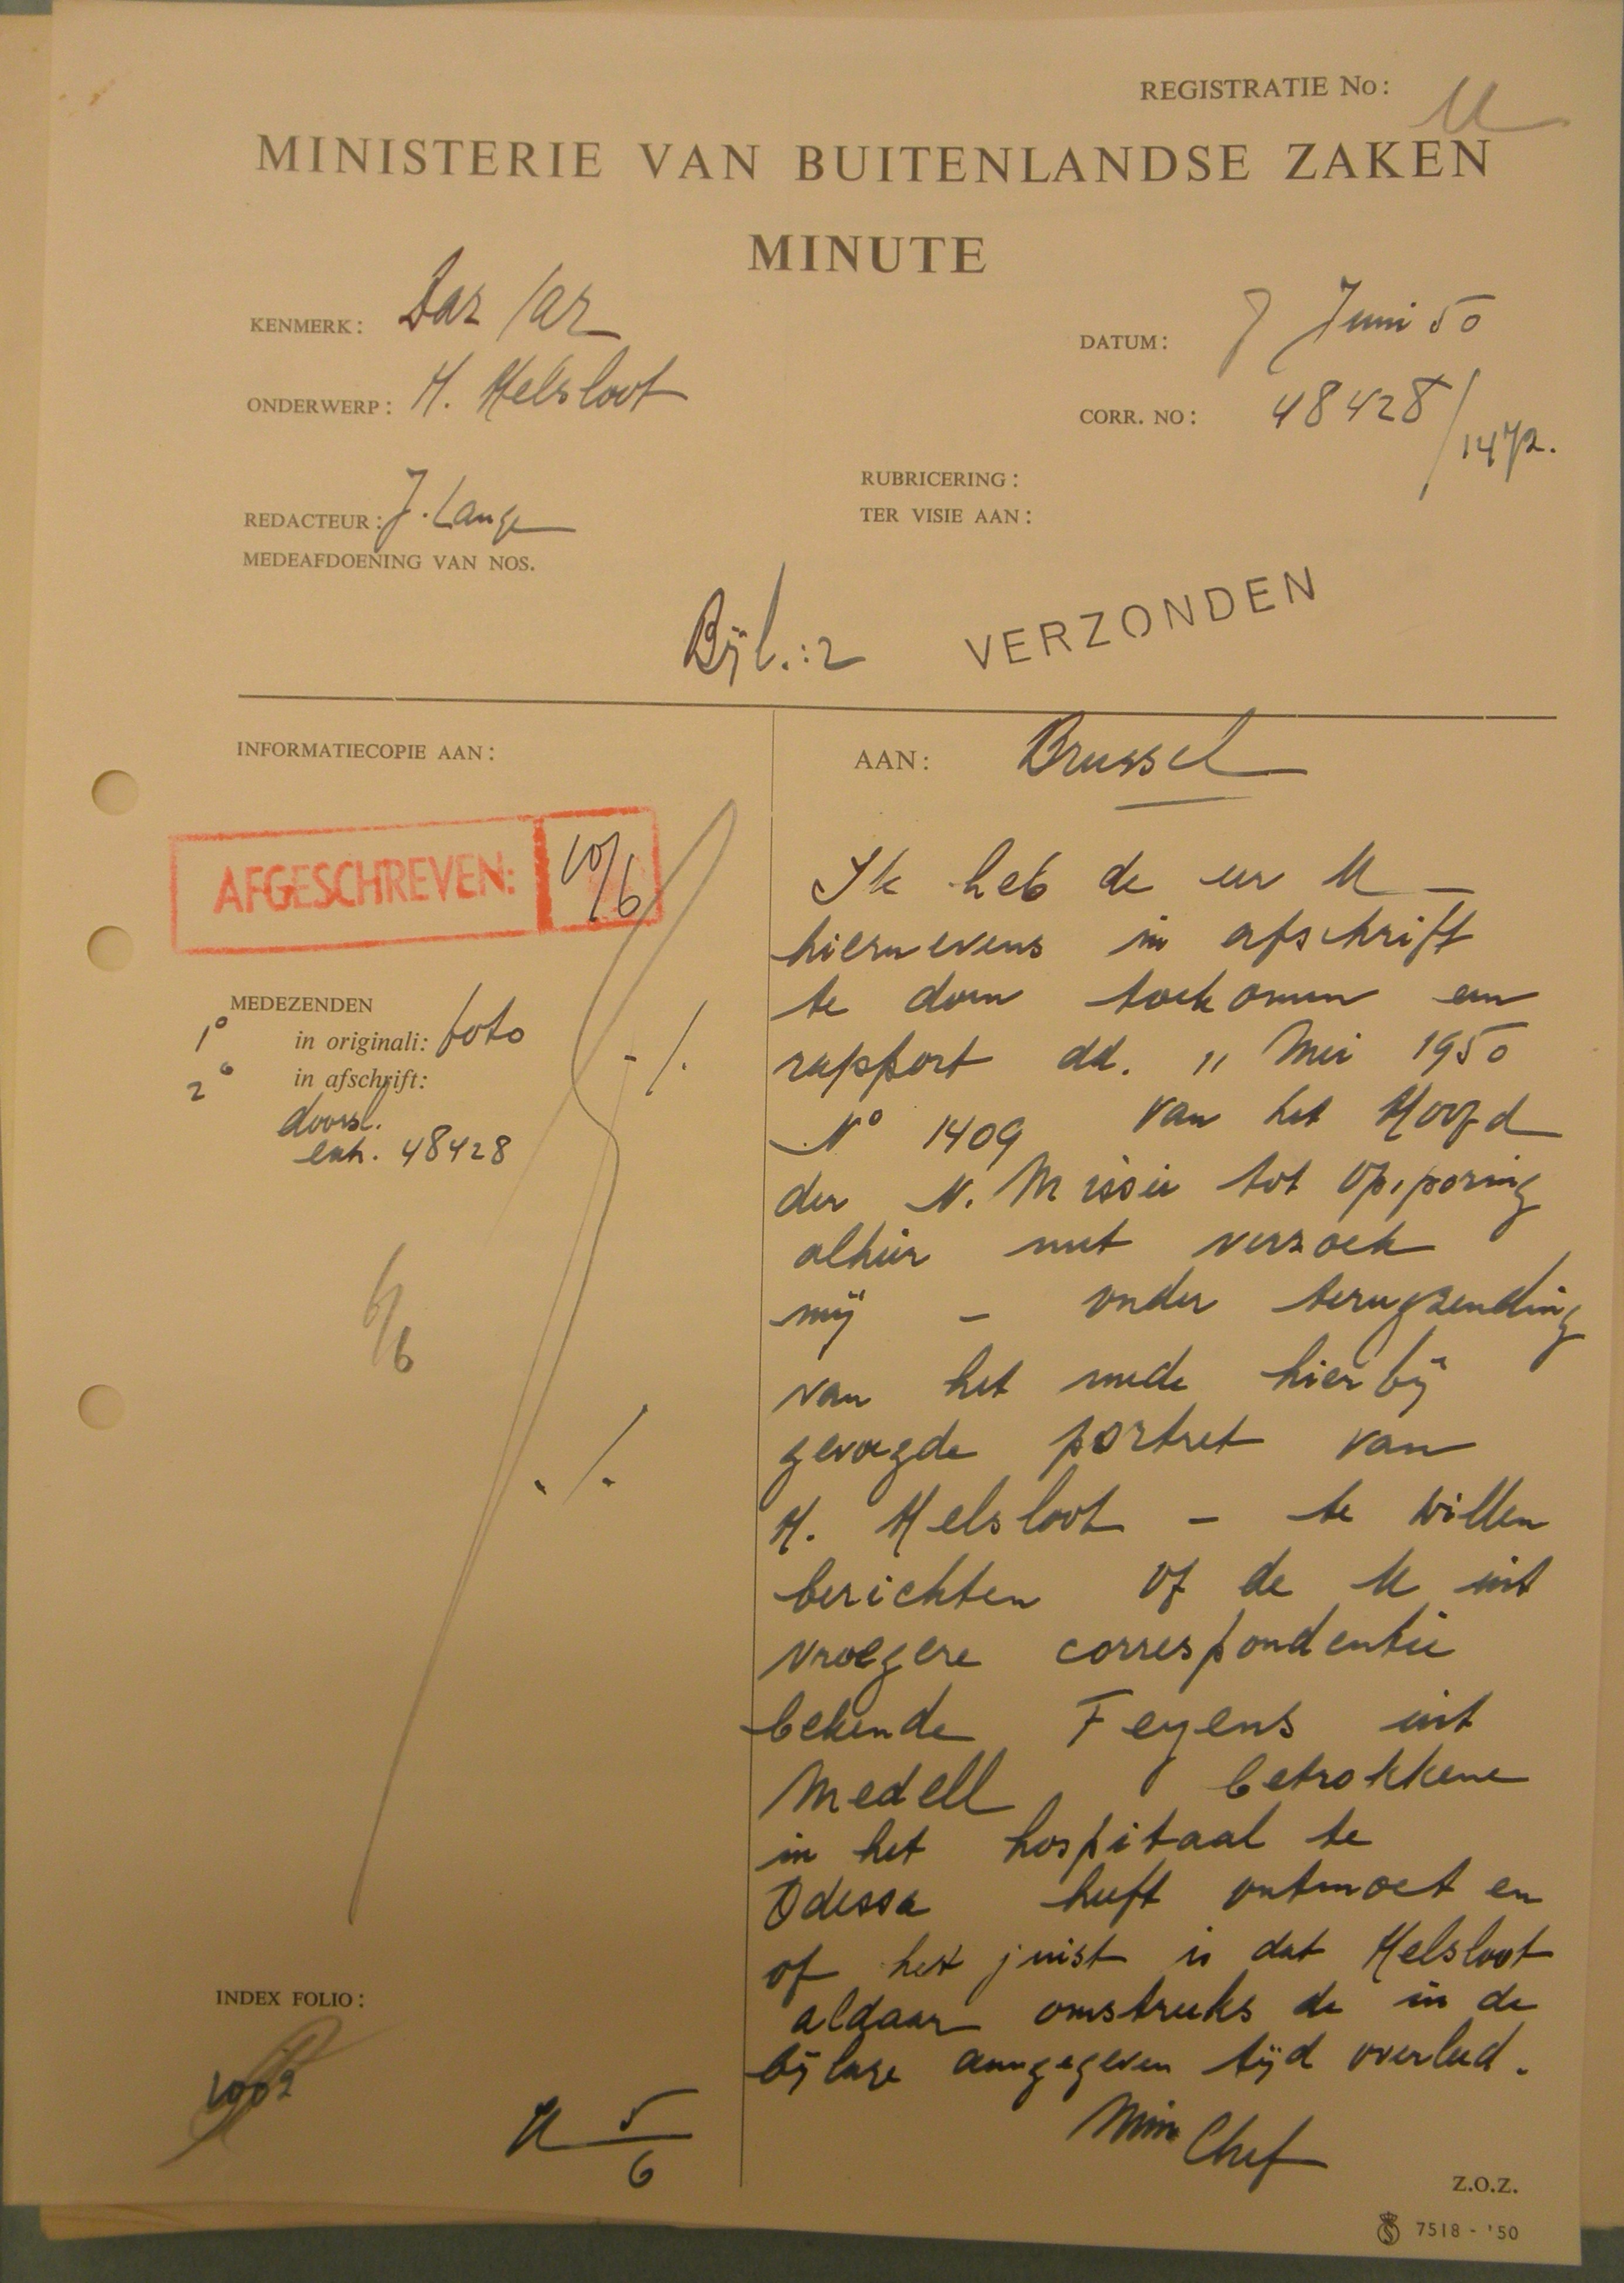 REGISTRATIE No: U
MINISTERIE VAN BUITENLANDSE ZAKEN
MINUTE
KENMERK: Daz/az
DATUM: 7 Juni 50
ONDERWERP: H. Helsloot
CORR. NO: 48428/1472.
RUBRICERING:
REDACTEUR: J. Lange
TER VISIE AAN:
MEDEAFDOENING VAN NOS.
Bijl.: 2
VERZONDEN
INFORMATIECOPIE AAN:
AFGESCHREVEN: 10/6
MEDEZENDEN
1° in originali: foto
2° in afschrift:
doorsl.
48428
6/6
INDEX FOLIO:
1002
5/6
AAN: Brussel
Ik heb de eer U
hiernevens in afschrift
te doen toekomen een
rapport dd. 11 Mei 1950
N° 1409 van het Hoofd
der N. Missie tot Opsporing
alhier met verzoek
mij – onder terugzending
van het mede hierbij
gevoegde portret van
H. Helsloot – te willen
berichten of de U uit
vroegere correspondentie
bekende Feyens uit
Medell betrokkene
in het hospitaal te
Odessa heeft ontmoet en
of het juist is dat Helsloot
aldaar omstreeks de in de
bijlage aangegeven tijd overleed.
Min
Chef
Z.O.Z.
7518 - '50